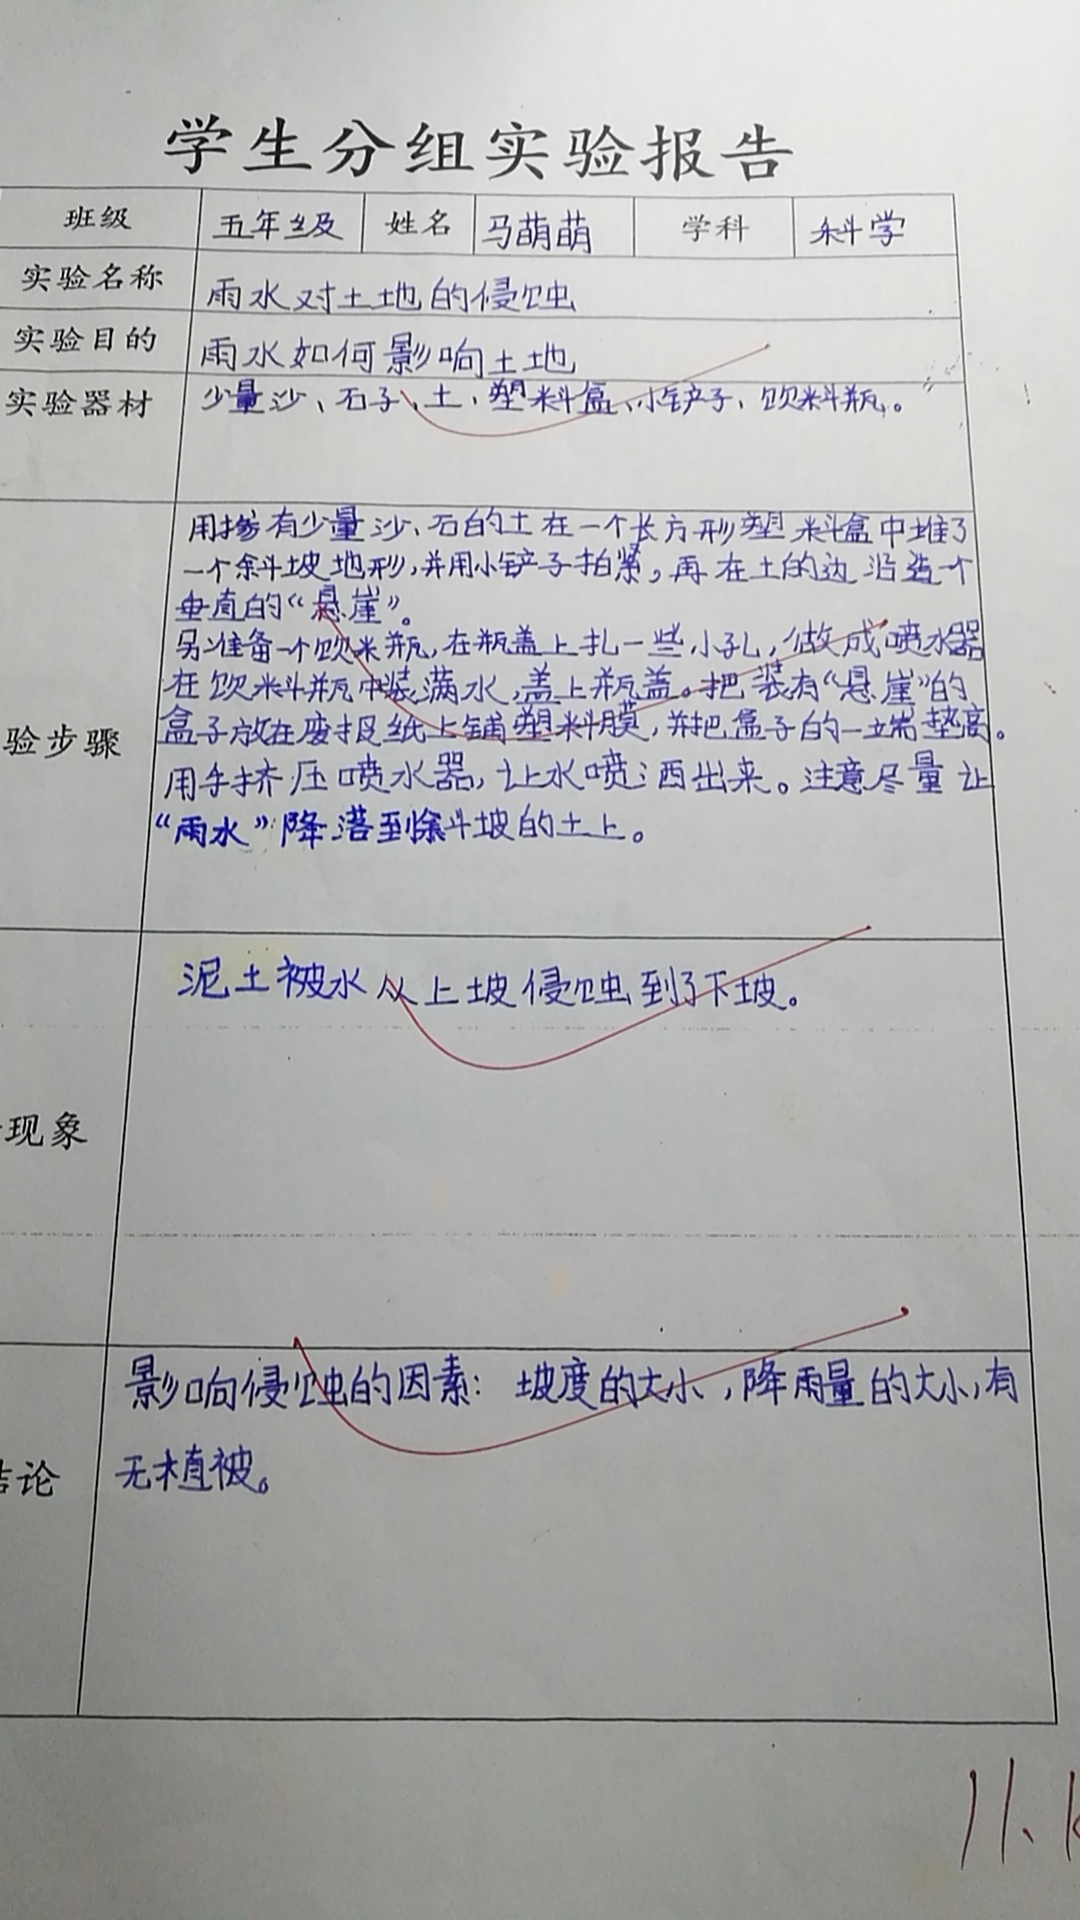 学生分组实验报告
班级 五年级 姓名 马萌萌 学科 科学
实验名称 雨水对土地的侵蚀
实验目的 雨水如何影响土地
实验器材 少量沙、石子、土、塑料盒、小铲子、饮料瓶。
用掺有少量沙、石的土在一个长方形塑料盒中堆了
一个斜坡地形,并用小铲子拍紧,再在土的边沿造个
垂直的“悬崖”。
另准备一个饮米瓶,在瓶盖上扎一些小孔,做成喷水器
在饮料瓶中装满水,盖上瓶盖。把装有“悬崖”的
验步骤 盒子放在废报纸上铺塑料膜,并把盒子的一端垫高。
用手挤压喷水器,让水喷洒出来。注意尽量让
“雨水”降落到斜坡的土上。
泥土被水从上坡侵蚀到了下坡。
现象
影响侵蚀的因素: 坡度的大小,降雨量的大小,有
结论 无植被。
11.